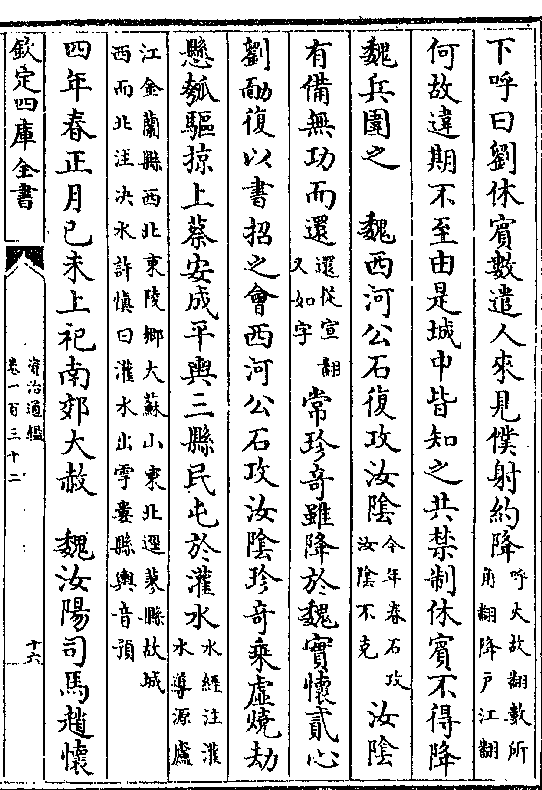 下呼曰劉休賓數遣人來見僕射約降呼火故翻數所角翻降戶江翻
何故違期不至由是城中皆知之共禁制休賓不得降
魏兵圍之　魏西河公石復攻汝陰今年春石攻汝陰不克汝陰
有備無功而還還從宣翻又如字　常珍奇雖降於魏實懷貳心
劉勔復以書招之會西河公石攻汝陰珍奇乘虛燒劫
懸瓠驅掠上蔡安成平輿三縣民屯於灌水水經注灌水導源廬
江金蘭縣西北東陵鄉大蘇山東北逕蓼縣故城
西而北注決水許慎曰灌水出雩婁縣輿音預
四年春正月己未上祀南郊大赦　魏汝陽司馬趙懷
欽定四庫全書
資治通鑑
卷一百三十二
十六